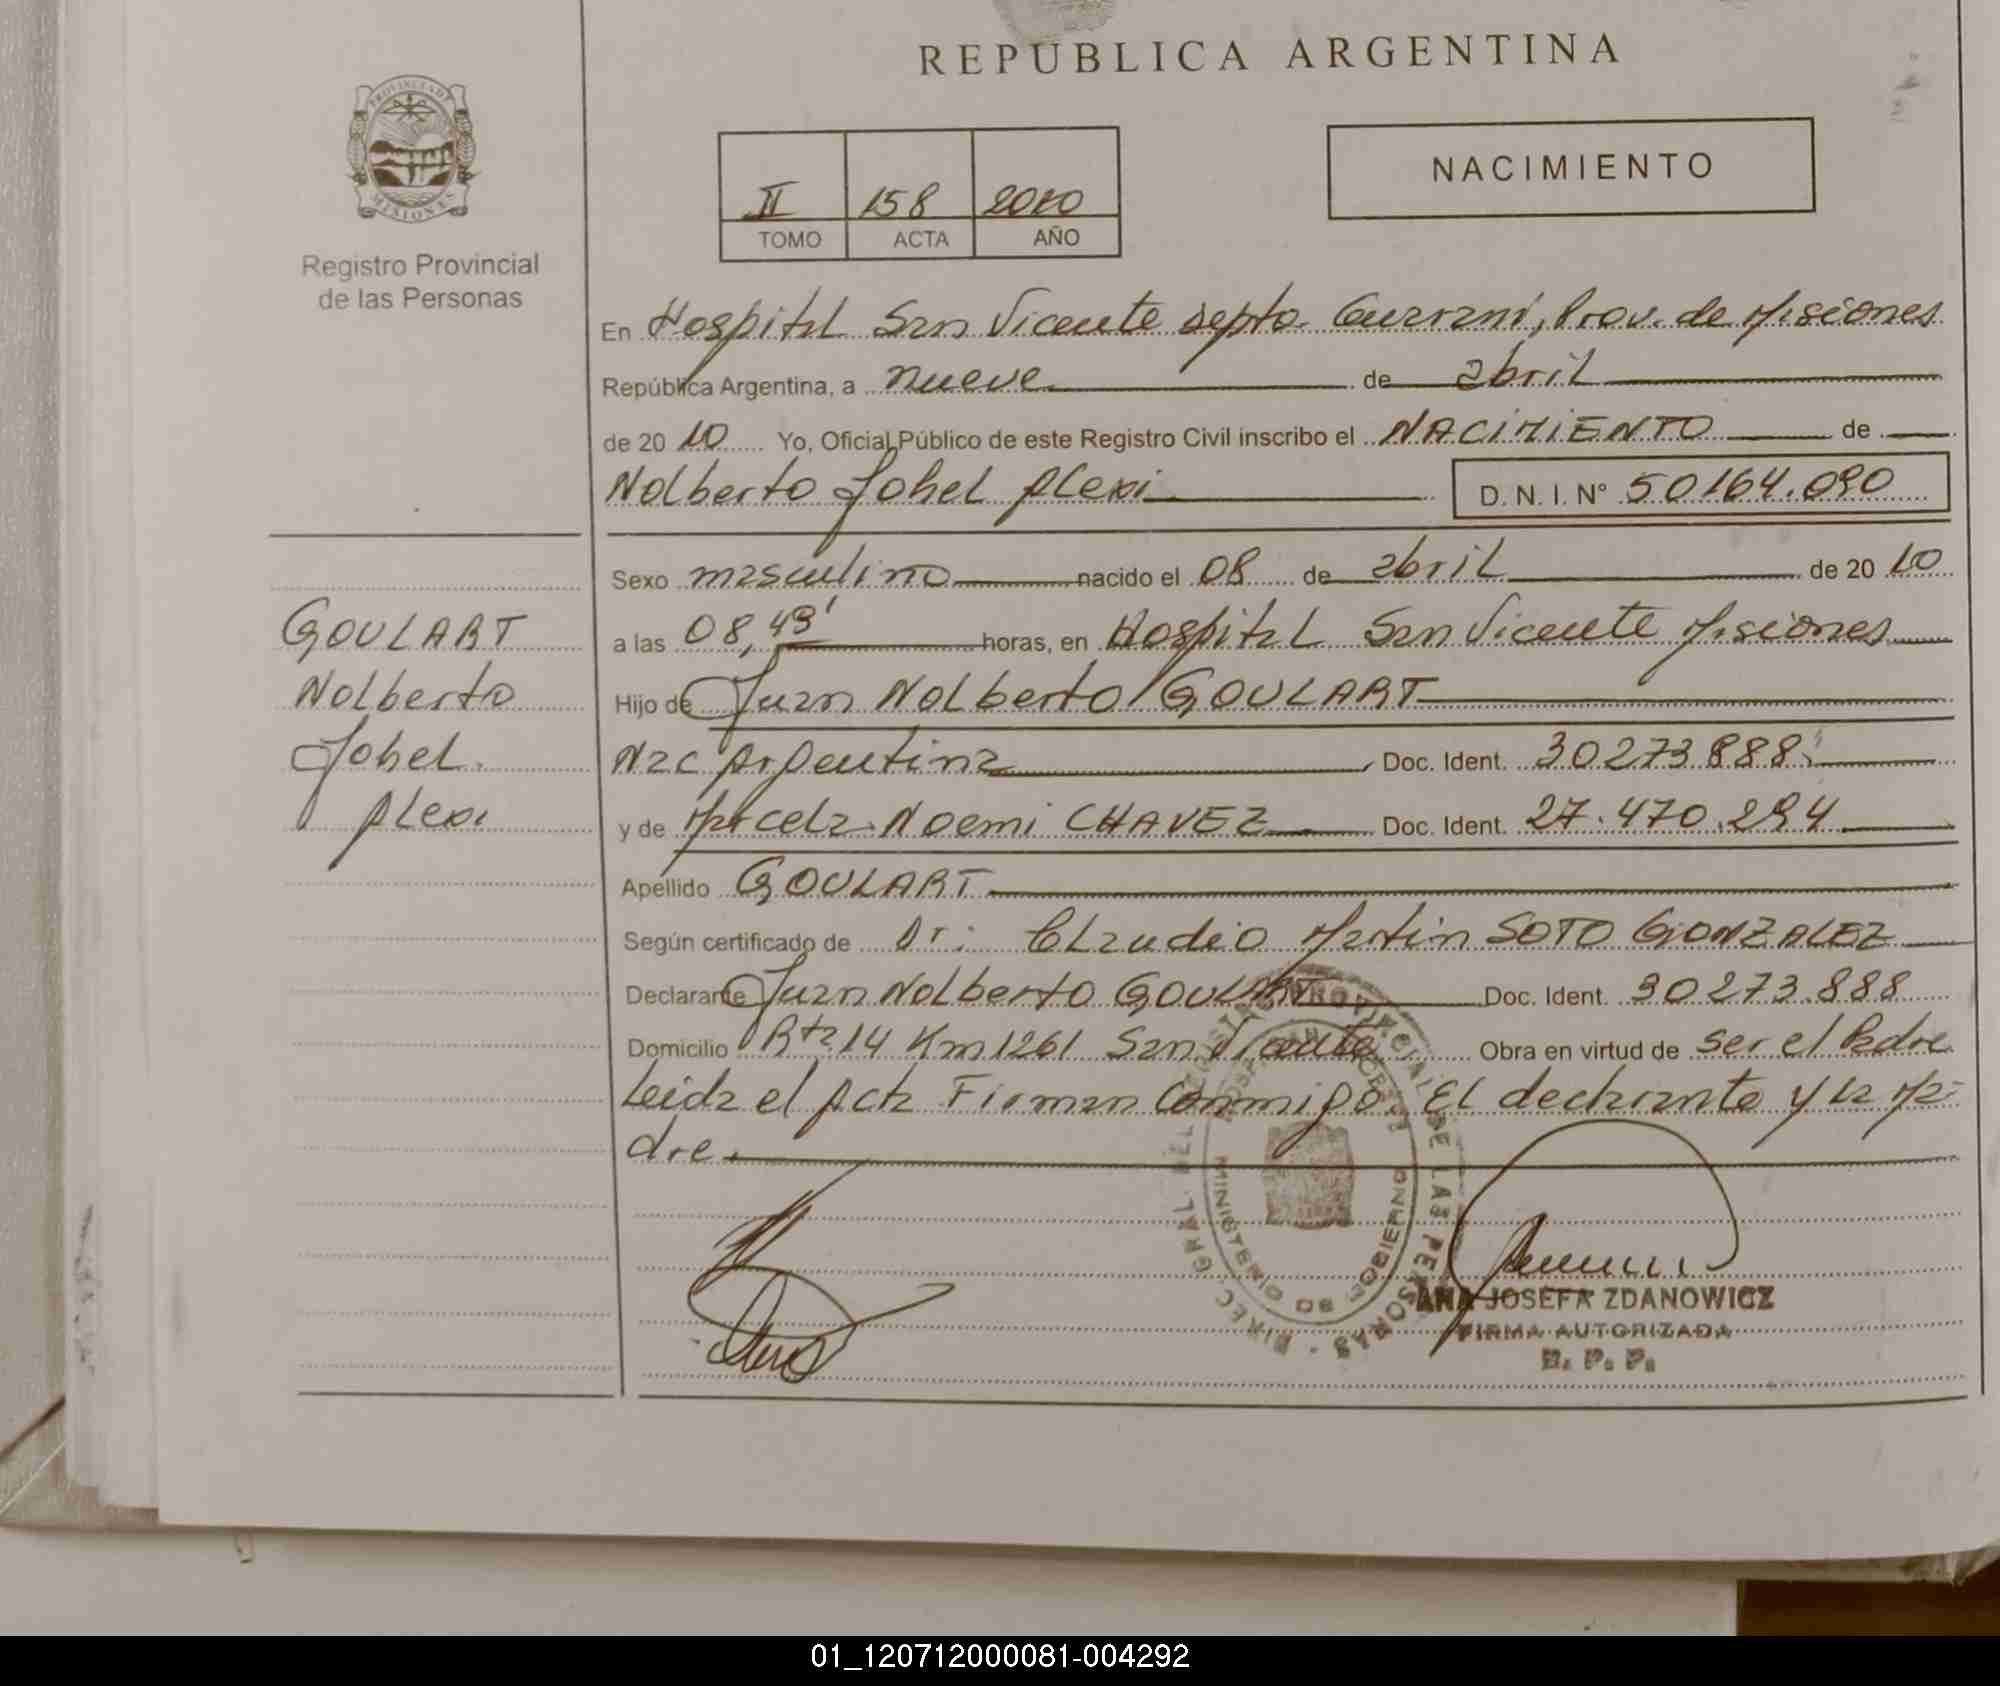 REPUBLICA ARGENTINA
PROVINCIA DE
MISIONES
Registro Provincial
de las Personas
II 158 2010
TOMO ACTA AÑO
NACIMIENTO
En Hospital San Vicente depto. Guarani, Prov. de Misiones
República Argentina, a nueve de abril
de 2010 Yo, Oficial Público de este Registro Civil inscribo el NACIMIENTO de
Nolberto Johel Alexi D. N. I. N° 50164.090
Sexo masculino nacido el 08 de abril de 2010
a las 08,43' horas, en Hospital San Vicente Misiones
Hijo de Juan Nolberto GOULART
Nac Argentina Doc. Ident. 30273888
y de Marcela Noemi CHAVEZ Doc. Ident. 27.470.294
Apellido GOULART
Según certificado de Dr. Claudio Martin SOTO GONZALEZ
Declarante Juan Nolberto GOULART Doc. Ident. 30273.888
Domicilio Rta 14 Km 1261 San Vicente Obra en virtud de ser el Padre
Leida el Acta Firman Conmigo. El declarante y la Ma-
dre.
GOULART
Nolberto
Johel
Alexi
DIREC. GRAL. DEL REGISTRO PROVINCIAL DE LAS PERSONAS
MINISTERIO DE GOBIERNO
ANA JOSEFA ZDANOWICZ
FIRMA AUTORIZADA
R. P. P.
01_120712000081-004292